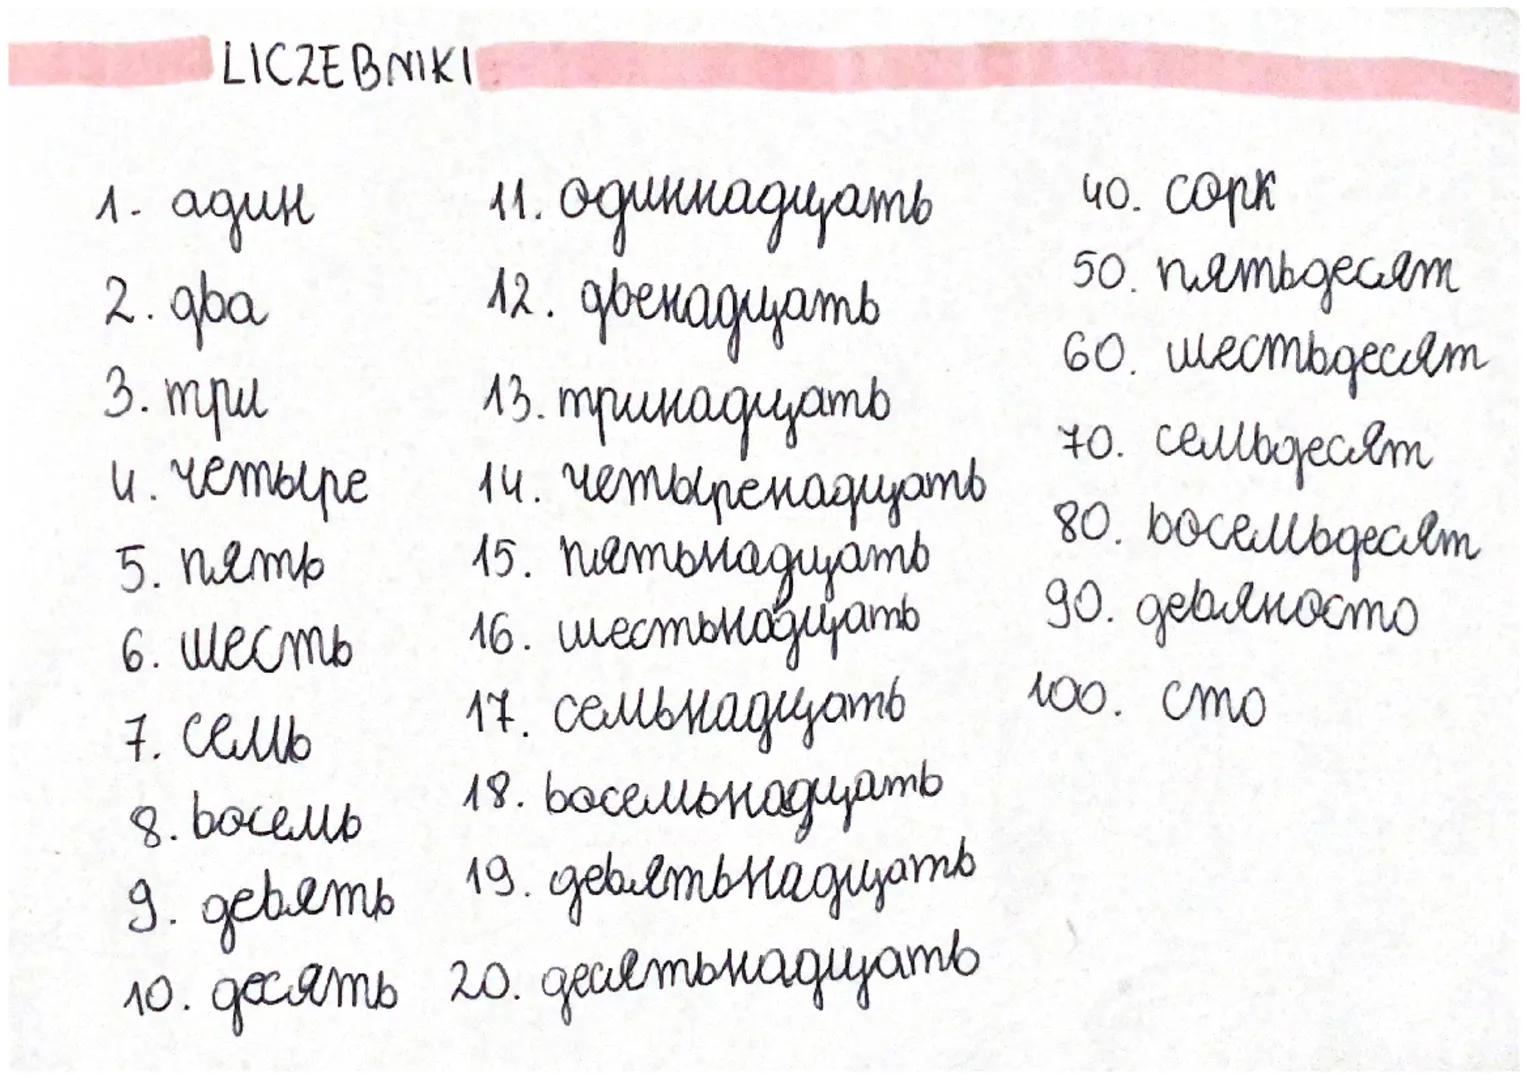 LICZEBNIKI
1. адин
2. два
3. три
4. четыре
5. пять
6. шесть
7. семь
8. восемь
9. девять
10. десять
11. одиннадцать
12. двенадцать
13. тринадцать
14. четыренадцать
15. пятьнадцать
16. шестьнадцать
17. семьнадцать
18. восемьнадцать
19. девятьнадцать
20. десятьнадцать
40. сорк
50. пятьдесят
60. шестьдесят
70. семьдесят
80. восемьдесят
90. девяносто
100. сто